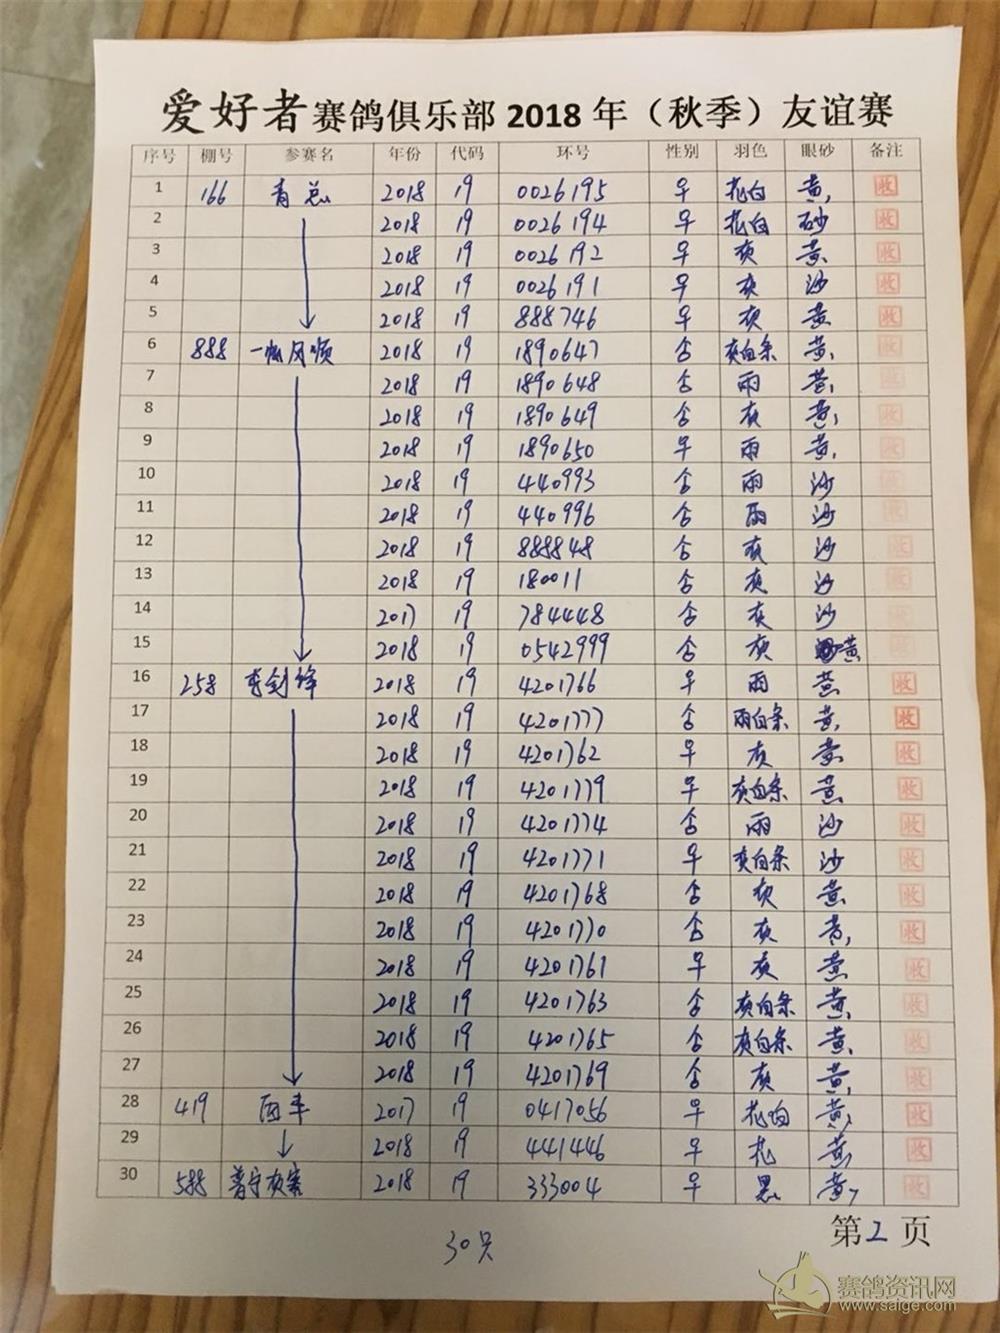 爱好者赛鸽俱乐部2018年（秋季）友谊赛
序号 棚号 参赛名 年份 代码 环号 性别 羽色 眼砂 备注
1 166 青总 2018 19 0026195 早 花白 黄 收
2 2018 19 0026194 早 花白 砂 收
3 2018 19 0026192 早 灰 黄 收
4 2018 19 0026191 早 灰 沙 收
5 2018 19 888746 早 灰 黄 收
6 888 一帆风顺 2018 19 1890647 否 灰白条 黄 收
7 2018 19 1890648 否 雨 黄 收
8 2018 19 1890649 否 灰 黄 收
9 2018 19 1890650 早 雨 黄 收
10 2018 19 440993 否 雨 沙 收
11 2018 19 440996 否 雨 沙 收
12 2018 19 888848 否 灰 沙 收
13 2018 19 180011 否 灰 沙 收
14 2017 19 784448 否 灰 沙 收
15 2018 19 0542999 否 灰 黄 收
16 258 李剑锋 2018 19 4201766 早 雨 黄 收
17 2018 19 4201777 否 雨白条 黄 收
18 2018 19 4201762 早 灰 黄 收
19 2018 19 4201779 早 灰白条 黄 收
20 2018 19 4201774 否 雨 沙 收
21 2018 19 4201771 早 灰白条 沙 收
22 2018 19 4201768 否 灰 黄 收
23 2018 19 4201770 否 灰 黄 收
24 2018 19 4201761 早 灰 黄 收
25 2018 19 4201763 否 灰白条 黄 收
26 2018 19 4201765 否 灰白条 黄 收
27 2018 19 4201769 否 灰 黄 收
28 419 2017 19 0417056 早 花白 黄 收
29 2018 19 441446 早 花 黄 收
30 588 普宁 2018 19 333004 早 黑 黄 收
第2页
30只
赛鸽资讯网
www.saige.com